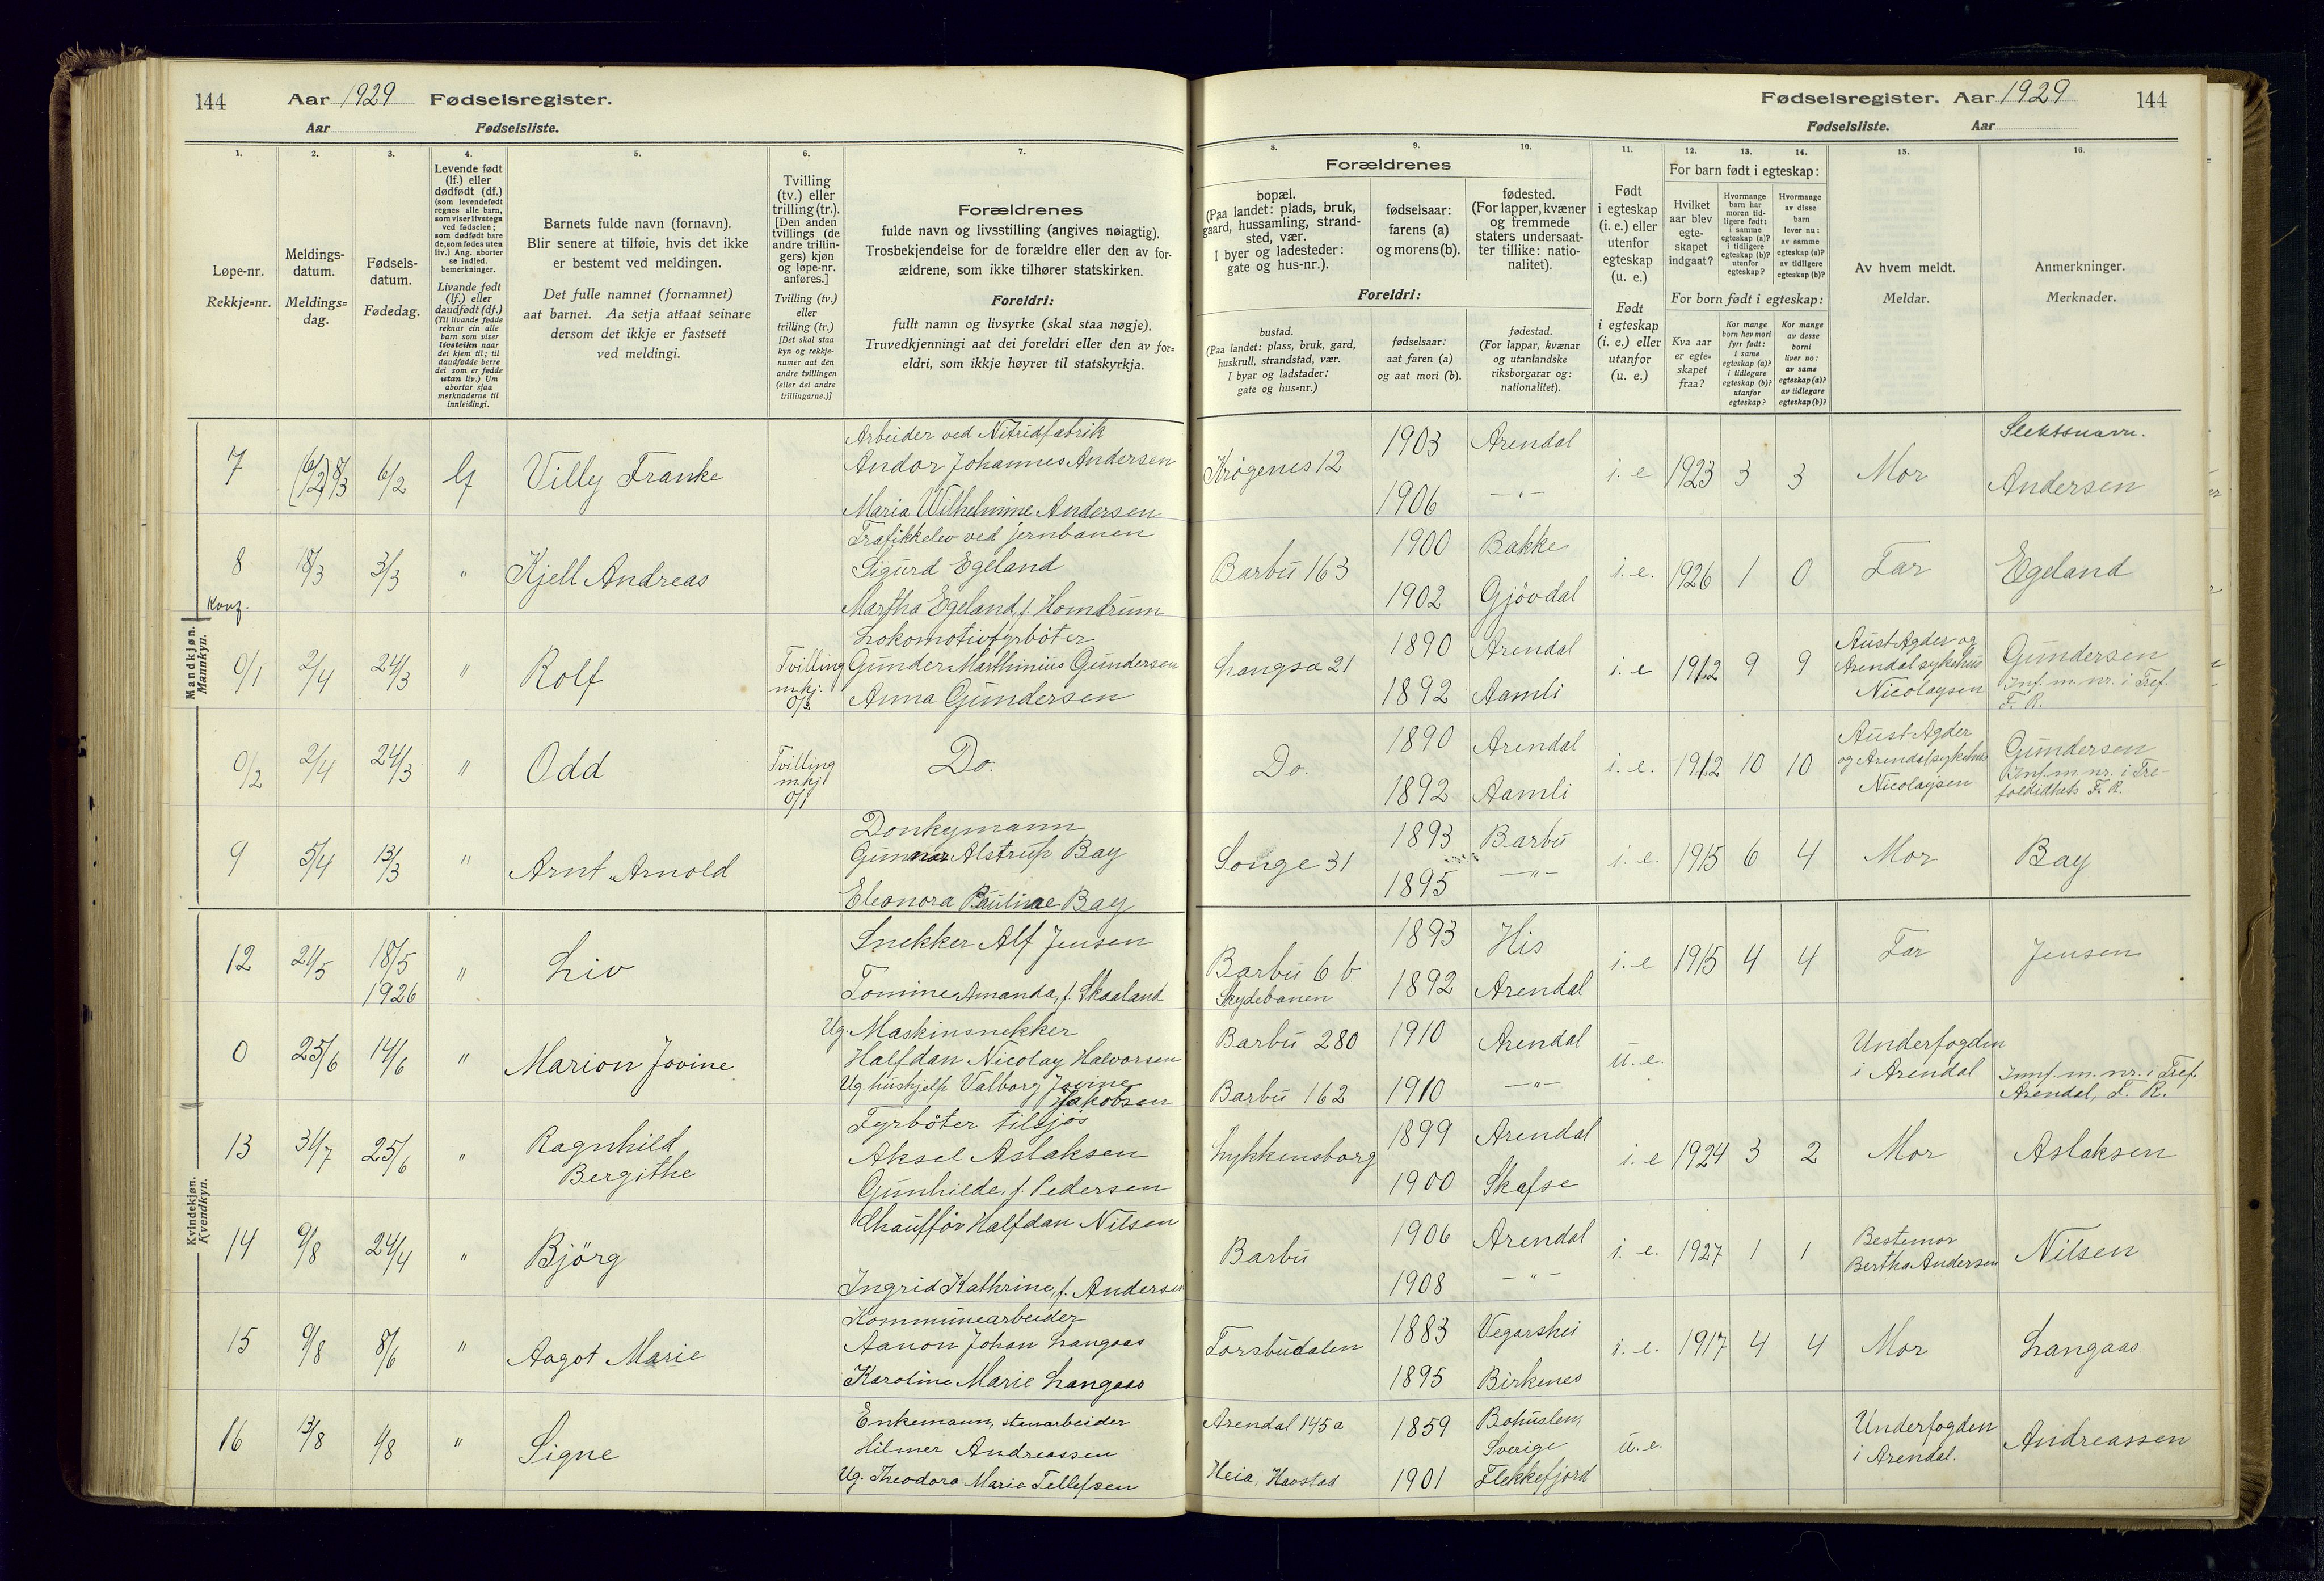 144 Aar 1929 Fødselsregister.
Aar Fødselsliste.
Fødselsregister. Aar 1929 144
Fødselsliste. Aar
1. 2. 3. 4. 5. 6. 7.
Løpe-nr.
Rekkje=nr.
Meldings-
datum.
Meldings=
dag.
Fødsels-
datum.
Fødedag.
Levende født
(lf.) eller
dødfødt (df.)
(som levendefødt
regnes alle barn,
som viser livstegn
ved fødselen;
som dødfødt bare
de, som fødes uten
liv.) Ang. aborter
se indled.
bemerkninger.
Livande født
(lf.) eller
daudfødt (df.)
(Til livande fødde
reknar ein alle
barn som viser
livsteikn naar
dei kjem til; til
daudfødde berre
dei som er fødde
utan liv.) Um
abortar sjaa
merknaderne til
innleidingi.
Barnets fulde navn (fornavn).
Blir senere at tilføie, hvis det ikke
er bestemt ved meldingen.
Det fulle namnet (fornamnet)
aat barnet. Aa setja attaat seinare
dersom det ikkje er fastsett
ved meldingi.
Tvilling
(tv.) eller
trilling (tr.).
[Den anden
tvillings (de
andre trillin-
gers) kjøn
og løpe-nr.
anføres.]
Tvilling (tv.)
eller
trilling (tr.)
[Det skal staa
kyn og rekkje-
numer aat den
andre tvillingen
(eller dei andre
trillingarne.)]
Forældrenes
fulde navn og livsstilling (angives nøiagtig).
Trosbekjendelse for de forældre eller den av for-
ældrene, som ikke tilhører statskirken.
Foreldri:
fullt namn og livsyrke (skal staa nøgje).
Truvedkjenningi aat dei foreldri eller den av for=
eldri, som ikkje høyrer til statskyrkja.
8. 9. 10. 11. 12. 13. 14. 15. 16.
Forældrenes
bopæl.
(Paa landet: plads, bruk,
gaard, hussamling, strand-
sted, vær.
I byer og ladesteder:
gate og hus-nr.).
fødselsaar:
farens (a)
og morens (b).
fødested.
(For lapper, kvæner
og fremmede
staters undersaat-
ter tillike: natio-
nalitet).
Foreldri:
bustad.
(Paa landet: plass, bruk, gard,
huskrull, strandstad, vær.
I byar og ladstader:
gate og hus=nr.)
fødselsaar:
aat faren (a)
og aat mori (b).
fødestad.
(For lappar, kvænar
og utanlandske
riksborgarar og:
nationalitet).
Født
i egteskap
(i. e.) eller
utenfor
egteskap
(u. e.)
Født
i egteskap
(i. e.) eller
utanfor
(u. e.)
For barn født i egteskap:
Hvilket
aar blev
egte-
skapet
indgaat?
Hvormange
barn har
moren tid-
ligere født:
i samme
egteskap (a)?
i tidligere
egteskap (b)?
utenfor
egteskap?
Hvormange
av disse
barn
lever nu:
av samme
egteskap (a)?
av tidligere
egteskap (b)?
For born født i egteskap:
Kva aar
er egte=
skapet
fraa?
Kor mange
born hev mori
fyrr født:
i same
egteskap (a)?
i tidlegare
egteskap (b)?
utanfor
egteskap?
Kor mange
av desse
borni
liver no:
av same
egteskap (a)?
av tidlegare
egteskap (b)?
Av hvem meldt.
Meldar.
Anmerkninger.
Merknader.
Mandkjøn.
Mannkyn.
Arbeider ved Nitridfabrik
7 (6/2) 8/3 6/2 lf Villy Franke Andor Johannes Andersen
Maria Wilhelmine Andersen
Krøgenes 12 1903 Arendal i. e 1923 3 3 Mor Slektsnavn. Andersen
1906 —"—
Trafikkelev ved jernbanen
8 18/3 3/3 " Kjell Andreas Sigurd Egeland
Martha Egeland, f. Homdrum
Barbu 163 1900 Bakke i. e. 1926 1 0 Far Egeland
1902 Gjövdal
Konf.
Lokomotivfyrböter
0/1 2/4 24/3 " Rolf Tvilling m.kj. 0/2 Gunder Marthinius Gundersen
Anna Gundersen
Langsæ 21 1890 Arendal i. e 1912 9 9 Aust-Agder og Arendal sykehus Nicolaysen Gundersen Inf. m. nr. i Tref. F. R.
1892 Aamli
0/2 2/4 24/3 " Odd Tvilling m.kj 0/1 Do.
Do. 1890 Arendal i. e. 1912 10 10 Aust-Agder og Arendal sykehus Nicolaysen Gundersen Inf. m. nr. i Tre-foldidhets F. R.
1892 Aamli
Donkymann
9 5/4 13/3 " Arnt Arnold Gunnar Alstrup Bay
Eleonora Pauline Bay
Songe 31 1893 Barbu i. e. 1915 6 4 Mor Bay
1895 —"—
Kvindekjøn.
Kvendkyn.
12 24/5 18/5 1926 " Liv Snekker Alf Jensen
Tomine Amanda, f. Skaaland
Barbu 6 b Skydebanen 1893 His i. e 1915 4 4 Far Jensen
1892 Arendal
Ug. Maskinsnekker
0 25/6 14/6 " Marion Jovine Halfdan Nicolay Halvorsen
Ug. hushjelp Valborg Jovine Jakobsen
Barbu 280 1910 Arendal u. e. Underfogden i Arendal Innf. m. nr. i Tref. Arendal, F. R.
Barbu 162 1910 —"—
Fyrböter tilsjøs
13 31/7 25/6 " Ragnhild Bergithe Aksel Aslaksen
Gunhilde, f. Pedersen
Lykkensborg 1899 Arendal i. e 1924 3 2 Mor Aslaksen
1900 Skafse
14 9/8 24/4 " Björg Chaufför Halfdan Nilsen
Ingrid Kathrine, f. Andersen
Barbu 1906 Arendal i. e. 1927 1 1 Bestemor Bertha Andersen Nilsen
1908 —"—
Kommunearbeider
15 9/8 8/6 " Aagot Marie Aanon Johan Langaas
Karoline Marie Langaas
Torsbudalen 1883 Vegarshei i. e. 1917 4 4 Mor Langaas.
1895 Birkenes
Enkemann, stenarbeider
16 13/8 4/8 " Signe Hilmer Andreassen
Ug. Theodora Marie Tellefsen
Arendal 145a 1859 Bohuslen, Sverige u. e. Underfogden i Arendal. Andreassen
Heia, Havstad 1901 Flekkefjord